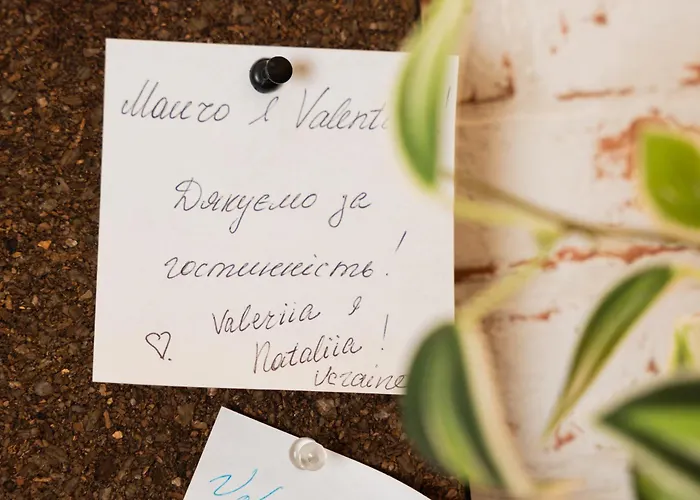 Mauro & Valent !
Дякуємо за
гостинність!
Valeriia &
Nataliia!
Ukraine